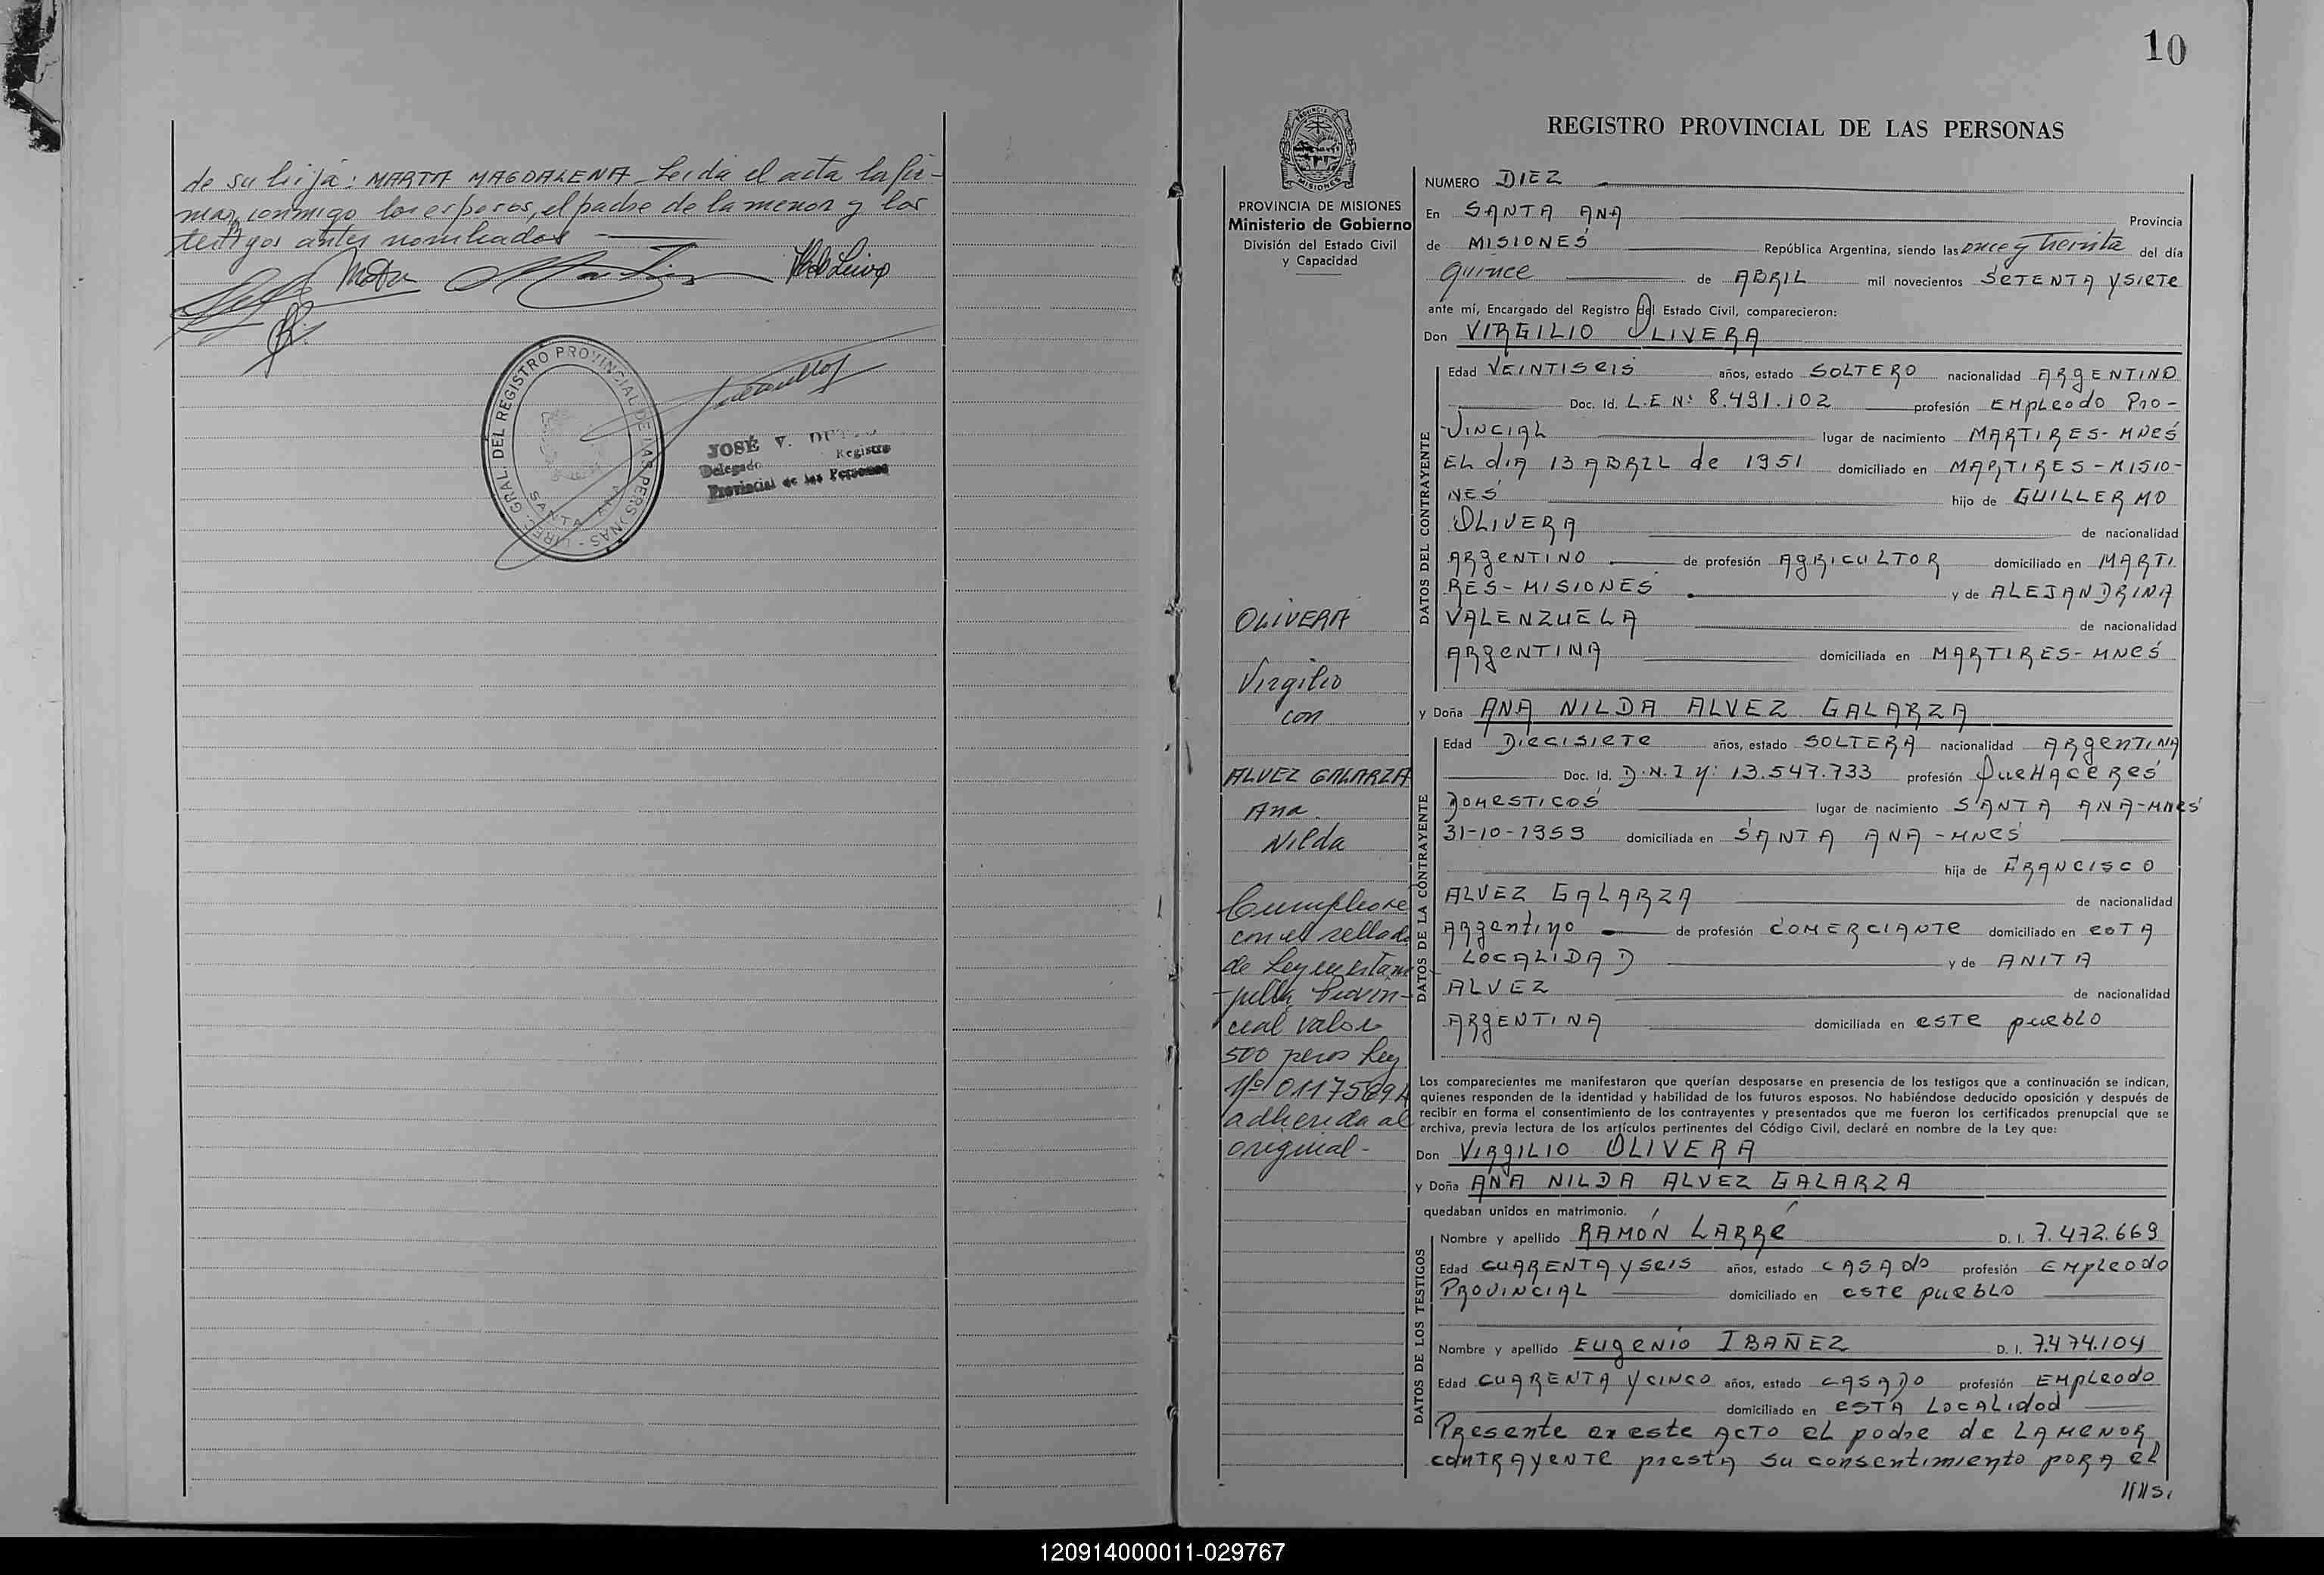 de su hija: MARTA MAGDALENA. Leída el acta la fir-
man conmigo los esposos, el padre de la menor y los
testigos antes nombrados
DIREC. GRAL. DEL REGISTRO PROVINCIAL DE LAS PERSONAS -
SANTA ANA
JOSÉ V.
Delegado Registro
Provincial de las Personas
10
PROVINCIA DE MISIONES
Ministerio de Gobierno
División del Estado Civil
y Capacidad
OLIVERA
Virgilio
con
ALVEZ GALARZA
Ana
Nilda
Cumpliose
con el sellado
de Ley en estam
-pilla Provin-
cial valor
500 pesos Ley
Nº 0117569A
adherida al
original-
REGISTRO PROVINCIAL DE LAS PERSONAS
NUMERO DIEZ
En SANTA ANA Provincia
de MISIONES República Argentina, siendo las once y treinta del día
quince de ABRIL mil novecientos SETENTA Y SIETE
ante mí, Encargado del Registro del Estado Civil, comparecieron:
Don VIRGILIO OLIVERA
DATOS DEL CONTRAYENTE
Edad VEINTISEIS años, estado SOLTERO nacionalidad ARGENTINO
Doc. Id. L.E Nº 8.491.102 profesión EMPLEADO PRO-
VINCIAL lugar de nacimiento MARTIRES-MNES
EL DIA 13 ABRIL de 1951 domiciliado en MARTIRES-MISIO-
NES hijo de GUILLERMO
OLIVERA de nacionalidad
ARGENTINO de profesión AGRICULTOR domiciliado en MARTI
RES-MISIONES y de ALEJANDRINA
VALENZUELA de nacionalidad
ARGENTINA domiciliada en MARTIRES-MNES
y Doña ANA NILDA ALVEZ GALARZA
DATOS DE LA CONTRAYENTE
Edad DIECISIETE años, estado SOLTERA nacionalidad ARGENTINA
Doc. Id. D.N.I Nº: 13.547.733 profesión QUEHACERES
DOMESTICOS lugar de nacimiento SANTA ANA-MNES
31-10-1959 domiciliada en SANTA ANA-MNES
hija de FRANCISCO
ALVEZ GALARZA de nacionalidad
ARGENTINO de profesión COMERCIANTE domiciliado en ESTA
LOCALIDAD y de ANITA
ALVEZ de nacionalidad
ARGENTINA domiciliada en ESTE PUEBLO
Los comparecientes me manifestaron que querían desposarse en presencia de los testigos que a continuación se indican,
quienes responden de la identidad y habilidad de los futuros esposos. No habiéndose deducido oposición y después de
recibir en forma el consentimiento de los contrayentes y presentados que me fueron los certificados prenupcial que se
archiva, previa lectura de los artículos pertinentes del Código Civil, declaré en nombre de la Ley que:
Don VIRGILIO OLIVERA
y Doña ANA NILDA ALVEZ GALARZA
quedaban unidos en matrimonio.
DATOS DE LOS TESTIGOS
Nombre y apellido RAMÓN LARRÉ D. I. 7.472.669
Edad CUARENTA Y SEIS años, estado CASADO profesión EMPLEADO
PROVINCIAL domiciliado en ESTE PUEBLO
Nombre y apellido EUGENIO IBAÑEZ D. I. 7.474.104
Edad CUARENTA Y CINCO años, estado CASADO profesión EMPLEADO
domiciliado en ESTA LOCALIDAD
PRESENTE en este ACTO el padre de LA MENOR
CONTRAYENTE presta su consentimiento PARA el
120914000011-029767